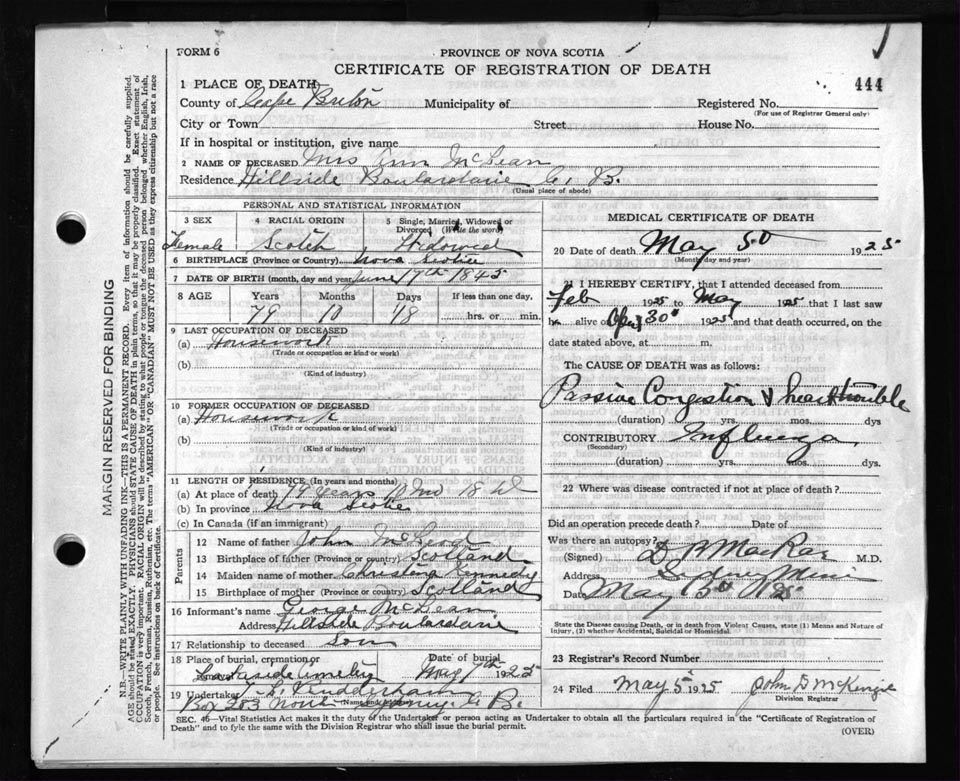 FORM 6
PROVINCE OF NOVA SCOTIA
CERTIFICATE OF REGISTRATION OF DEATH
444
1 PLACE OF DEATH
County of Cape Breton Municipality of Registered No.
(For use of Registrar General only)
City or Town Street House No.
If in hospital or institution, give name
2 NAME OF DECEASED Mrs Ann McLean
Residence Hillside Boulardarie C. B.
(Usual place of abode)
PERSONAL AND STATISTICAL INFORMATION
3 SEX 4 RACIAL ORIGIN 5 Single, Married, Widowed or Divorced (Write the word)
Female Scotch Widowed
6 BIRTHPLACE (Province or Country) Nova Scotia
7 DATE OF BIRTH (month, day and year) June 17th 1845
8 AGE Years Months Days If less than one day,
79 10 18 hrs. or min.
9 LAST OCCUPATION OF DECEASED
(a) Housework
(Trade or occupation or kind or work)
(b)
(Kind of industry)
10 FORMER OCCUPATION OF DECEASED
(a) Housework
(Trade or occupation or kind of work)
(b)
(Kind of industry)
11 LENGTH OF RESIDENCE (In years and months)
(a) At place of death 79 years 10 mo 18 d
(b) In province Nova Scotia
(c) In Canada (if an immigrant)
Parents
12 Name of father John McLeod
13 Birthplace of father (Province or country) Scotland
14 Maiden name of mother Christina Kennedy
15 Birthplace of mother (Province or country) Scotland
16 Informant's name George McLean
Address Hillside Boulardarie
17 Relationship to deceased Son
18 Place of burial, cremation or removal Date of burial
May 7th 1925
19 Undertaker
(Name and address)
Box 283 North Sydney C. B.
MEDICAL CERTIFICATE OF DEATH
20 Date of death May 5th 1925
(Month, day and year)
21 I HEREBY CERTIFY, that I attended deceased from
Feb 1925 to May 1925 that I last saw
h alive on Apr 30th 1925 and that death occurred, on the
date stated above, at m.
The CAUSE OF DEATH was as follows:
Passive Congestion & heart trouble
(duration) yrs. mos. dys
CONTRIBUTORY Influenza
(Secondary)
(duration) yrs. mos. dys.
22 Where was disease contracted if not at place of death?
Did an operation precede death? Date of
Was there an autopsy?
(Signed) D R MacRae M.D.
Address
Date May 5th 1925
State the Disease causing Death, or in death from Violent Causes, state (1) Means and Nature of
Injury, (2) whether Accidental, Suicidal or Homicidal.
23 Registrar's Record Number
24 Filed May 5 1925 John McKenzie
Division Registrar
SEC. 46—Vital Statistics Act makes it the duty of the Undertaker or person acting as Undertaker to obtain all the particulars required in the "Certificate of Registration of
Death" and to fyle the same with the Division Registrar who shall issue the burial permit.
(OVER)
MARGIN RESERVED FOR BINDING
N.B.—WRITE PLAINLY WITH UNFADING INK.—THIS IS A PERMANENT RECORD. Every item of information should be carefully supplied.
AGE should be stated EXACTLY. PHYSICIANS should STATE CAUSE OF DEATH in plain terms, so that it may be properly classified. Exact statement of
OCCUPATION is very important. RACIAL ORIGIN will be described by stating to what people or tongue the deceased person belonged, whether English, Irish,
Scotch, French, German, Russian, Ruthenian, etc. The terms "AMERICAN" OR "CANADIAN" MUST NOT BE USED as they express citizenship but not a race
or people. See instructions on back of Certificate.